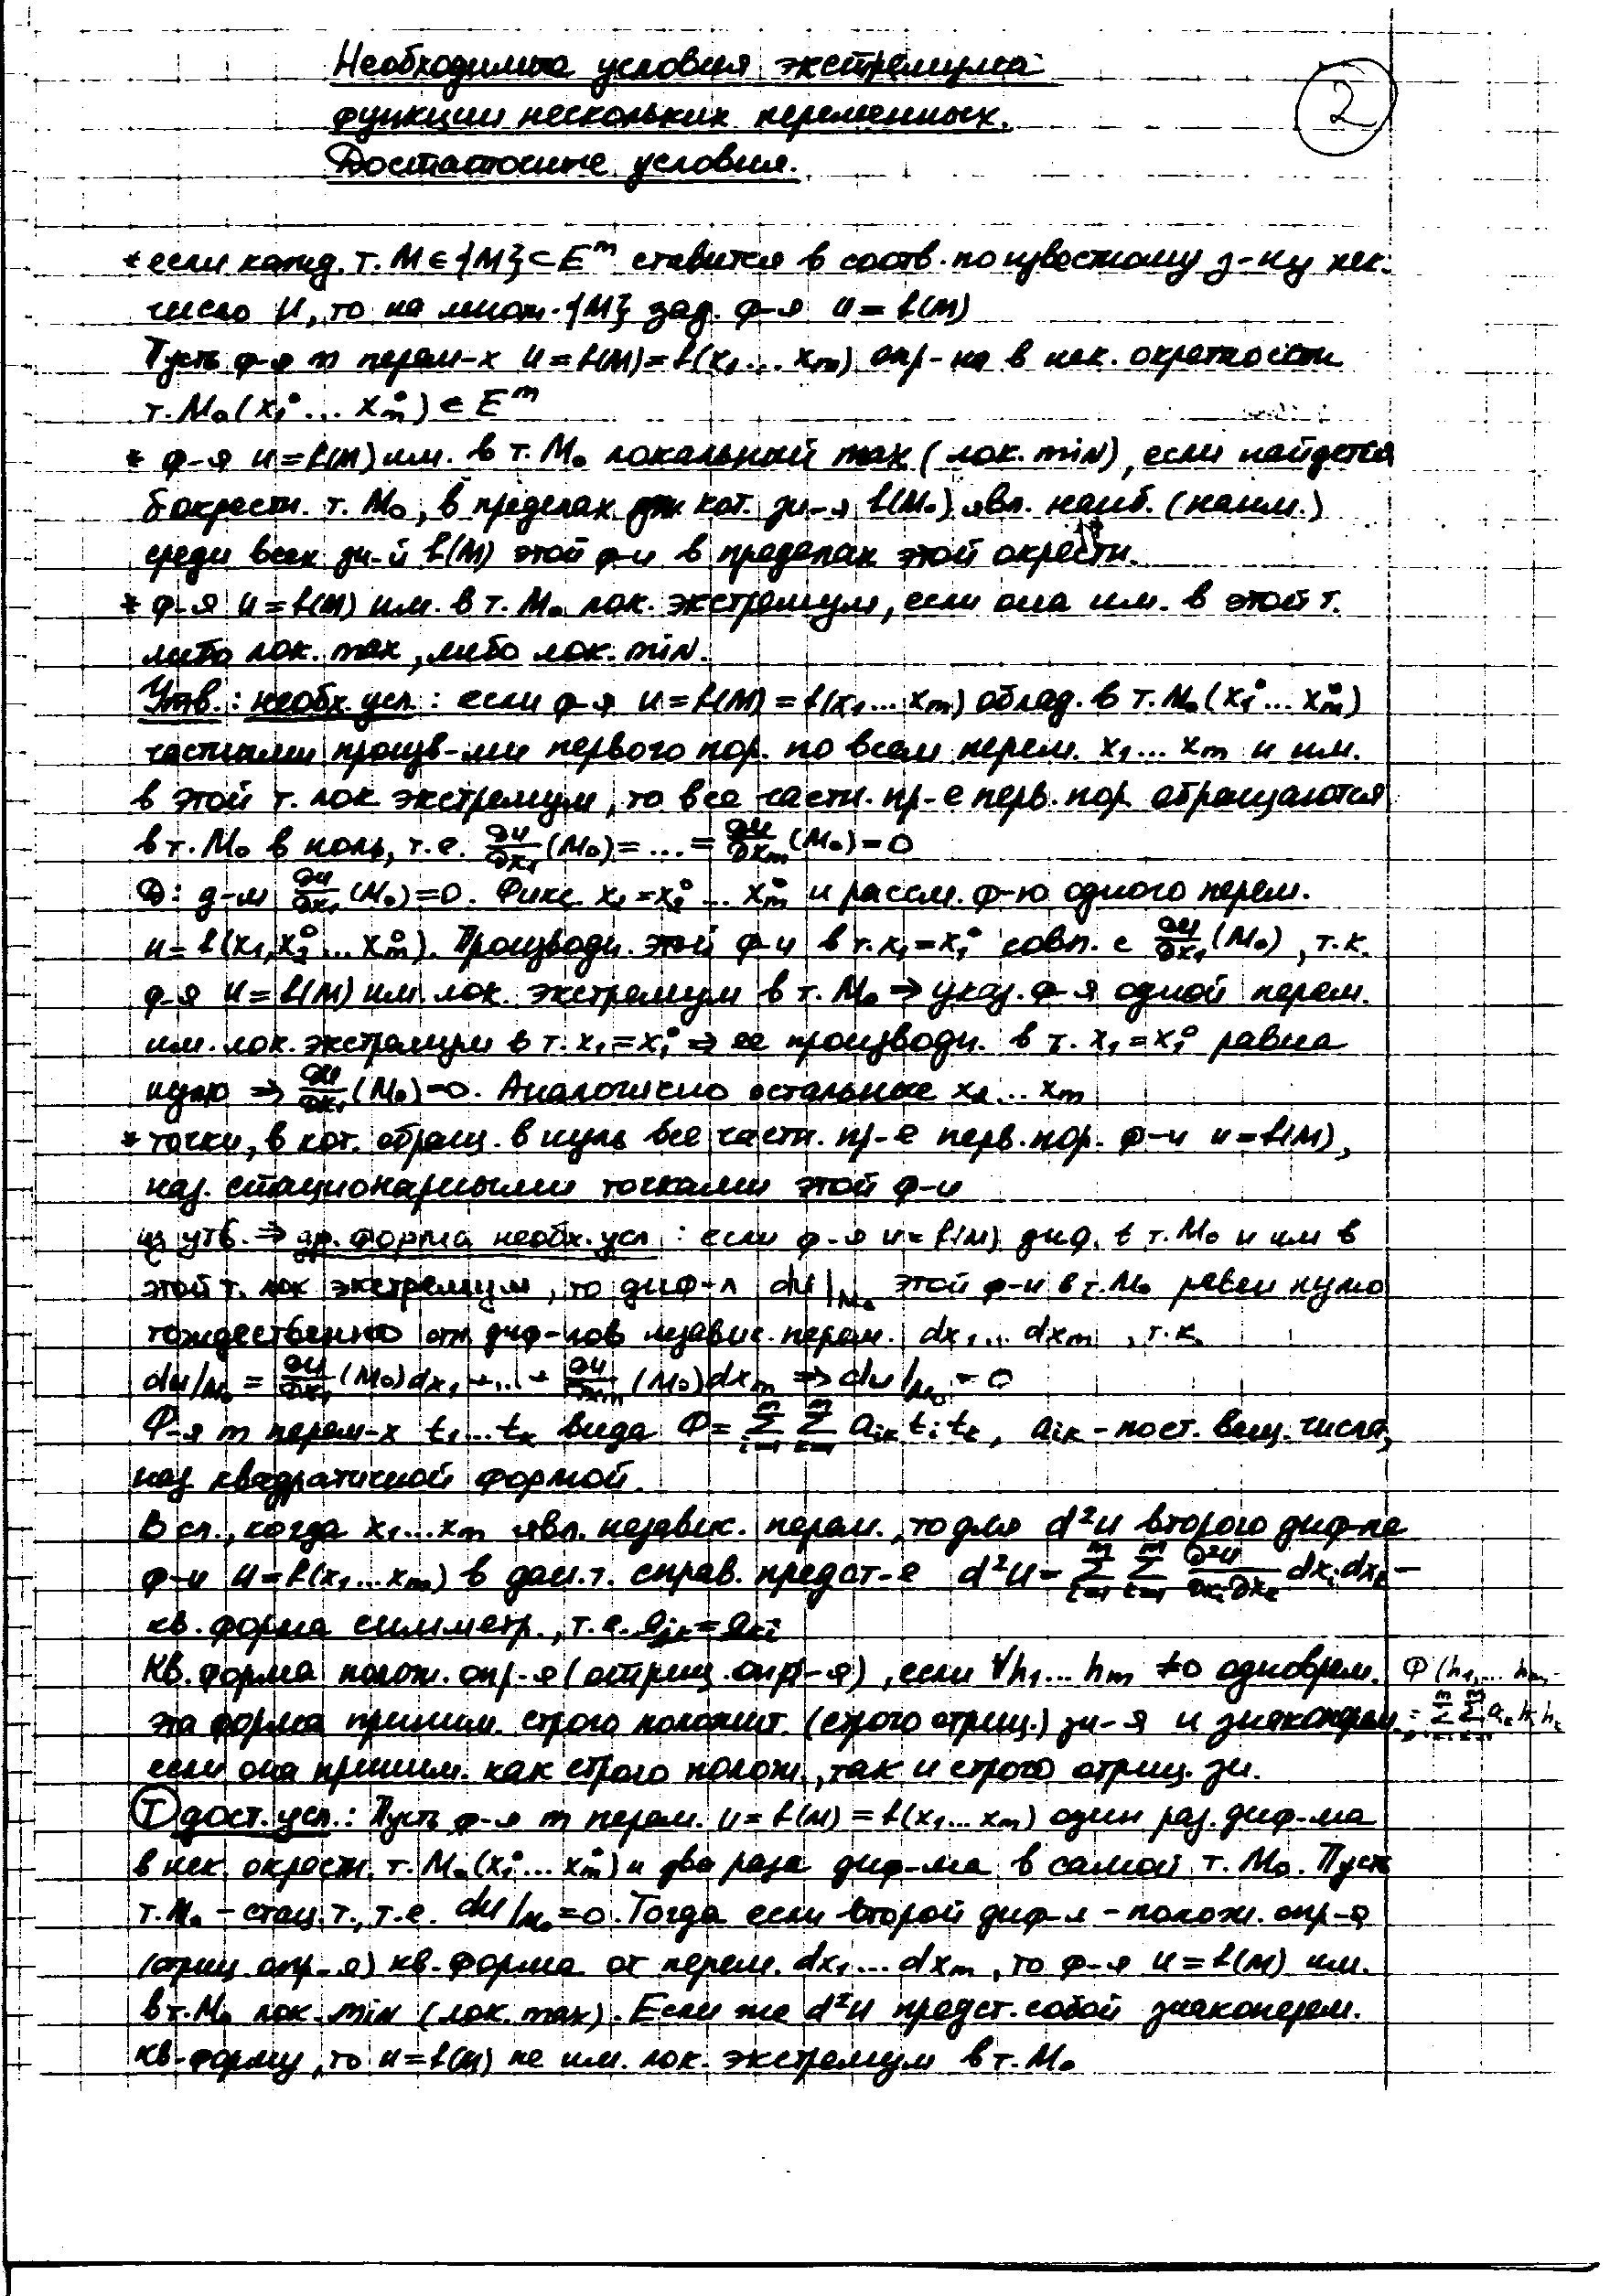 Необходимые условия экстремума
функции нескольких переменных.
Достаточные условия.
2
* если кажд. т. M ∈ {M} ⊂ E^m ставится в соотв. по известному з-ну нек.
число u, то на множ. {M} зад. ф-я u = f(M)
Пусть ф-я m перем-х u = f(M) = f(x₁ ... xₘ) опр-на в нек. окрестности
т. M₀(x₁° ... xₘ°) ∈ E^m
* ф-я u = f(M) им. в т. M₀ локальный max (лок. min), если найдется
δ окрестн. т. M₀, в пределах кот. зн-я f(M₀) явл. наиб. (наим.)
среди всех зн-й f(M) этой ф-и в пределах этой окрестн.
* ф-я u = f(M) им. в т. M₀ лок. экстремум, если она им. в этой т.
либо лок. max, либо лок. min.
Утв.: необх. усл.: если ф-я u = f(M) = f(x₁ ... xₘ) облад. в т. M₀(x₁° ... xₘ°)
частными произв-ми первого пор. по всем перем. x₁ ... xₘ и им.
в этой т. лок экстремум, то все частн. пр-е перв. пор. обращаются
в т. M₀ в ноль, т.е. ∂u/∂x₁ (M₀) = ... = ∂u/∂xₘ (M₀) = 0
Д: д-м ∂u/∂x₁ (M₀) = 0. Фикс. x₂ = x₂° ... xₘ° и рассм. ф-ю одного перем.
u = f(x₁, x₂° ... xₘ°). Производн. этой ф-и в т. x₁ = x₁° совп. с ∂u/∂x₁ (M₀), т.к.
ф-я u = f(M) им. лок. экстремум в т. M₀ ⇒ указ. ф-я одной перем.
им. лок. экстремум в т. x₁ = x₁° ⇒ ее производн. в т. x₁ = x₁° равна
нулю ⇒ ∂u/∂x₁ (M₀) = 0. Аналогично остальные x₂ ... xₘ
* точки, в кот. обращ. в нуль все частн. пр-е перв. пор. ф-и u = f(M),
наз. стационарными точками этой ф-и
из утв. ⇒ др. форма необх. усл: если ф-я u = f(M) диф. в т. M₀ и им в
этой т. лок экстремум, то диф-л du|M₀ этой ф-и в т. M₀ равен нулю
тождественно отн. диф-лов независ. перем. dx₁ ... dxₘ, т.к.
du|M₀ = ∂u/∂x₁ (M₀) dx₁ + ... + ∂u/∂xₘ (M₀) dxₘ ⇒ du|M₀ = 0
Ф-я m перем-х t₁ ... tₖ вида Φ = Σᵢ₌₁ᵐ Σₖ₌₁ᵐ aᵢₖ tᵢ tₖ, aᵢₖ - пост. вещ. числа,
наз квадратичной формой.
В сл., когда x₁ ... xₘ явл. независ. перем., то для d²u второго диф-ла
ф-и u = f(x₁ ... xₘ) в дан. т. справ. предст-е d²u = Σᵢ₌₁ᵐ Σₖ₌₁ᵐ ∂²u/∂xᵢ∂xₖ dxᵢ dxₖ –
кв. форма симметр., т.е. aᵢₖ = aₖᵢ
Кв. форма полож. опр-я (отриц. опр-я), если ∀h₁ ... hₘ ≠ 0 одноврем. Φ(h₁, ... hₘ
эта форма приним. строго положит. (строго отриц.) зн-я и знакоперем. = Σ Σ aᵢₖ hᵢ hₖ
если она приним. как строго полож., так и строго отриц. зн.
Т дост. усл.: Пусть ф-я m перем. u = f(M) = f(x₁ ... xₘ) один раз. диф-ма
в нек. окрестн. т. M₀(x₁° ... xₘ°) и два раза диф-ма в самой т. M₀. Пусть
т. M₀ – стац. т., т.е. du|M₀ = 0. Тогда если второй диф-л – полож. опр-я
(отриц. опр-я) кв. форма от перем. dx₁ ... dxₘ, то ф-я u = f(M) им.
в т. M₀ лок. min (лок. max). Если же d²u предст. собой знакоперем.
кв. форму, то u = f(M) не им. лок. экстремум в т. M₀